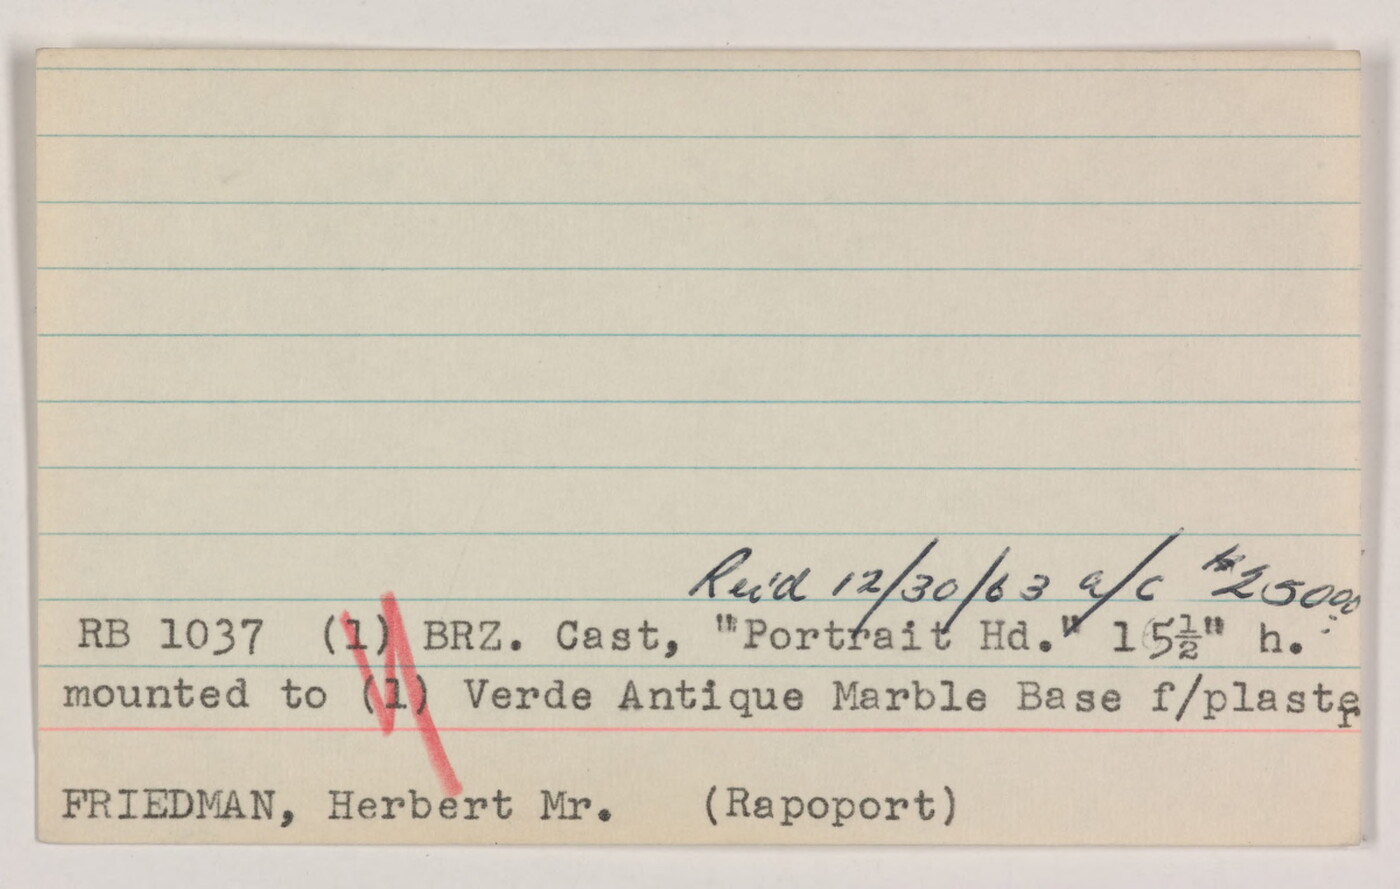 Rec'd 12/30/63 a/c $250.00
RB 1037 (1) BRZ. Cast, "Portrait Hd." 15½" h.
mounted to (1) Verde Antique Marble Base f/plaster
FRIEDMAN, Herbert Mr. (Rapoport)